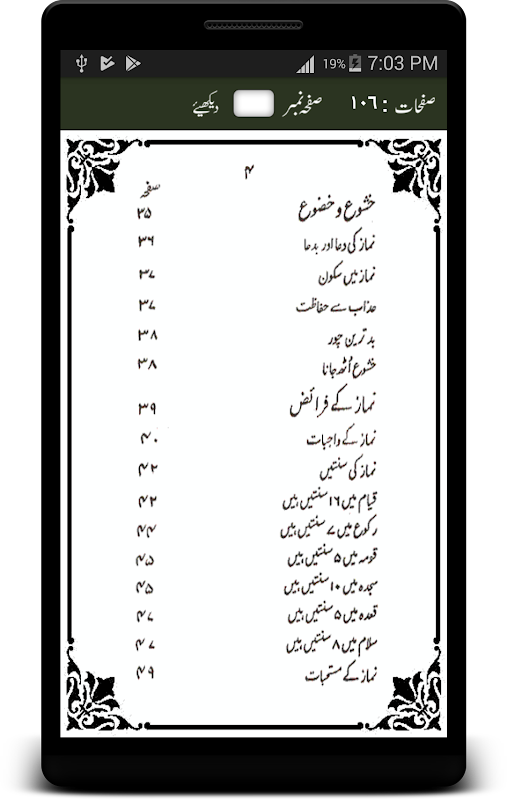 19% 7:03 PM
صفحات : ۱۰٦ صفحہ نمبر دیکھیئے
۴
صفحہ
خشوع و خضوع ۳۵
نماز کی دعا اور بدعا ۳۶
نماز میں سکون ۳۷
عذاب سے حفاظت ۳۷
بدترین چور ۳۸
خشوع اُٹھ جانا ۳۸
نماز کے فرائض ۳۹
نماز کے واجبات ۴۰
نماز کی سنتیں ۴۲
قیام میں ۱۶ سنتیں ہیں ۴۲
رکوع میں ۷ سنتیں ہیں ۴۴
قومہ میں ۵ سنتیں ہیں ۴۵
سجدہ میں ۱۰ سنتیں ہیں ۴۵
قعدہ میں ۵ سنتیں ہیں ۴۷
سلام میں ۸ سنتیں ہیں ۴۷
نماز کے مستحبات ۴۹